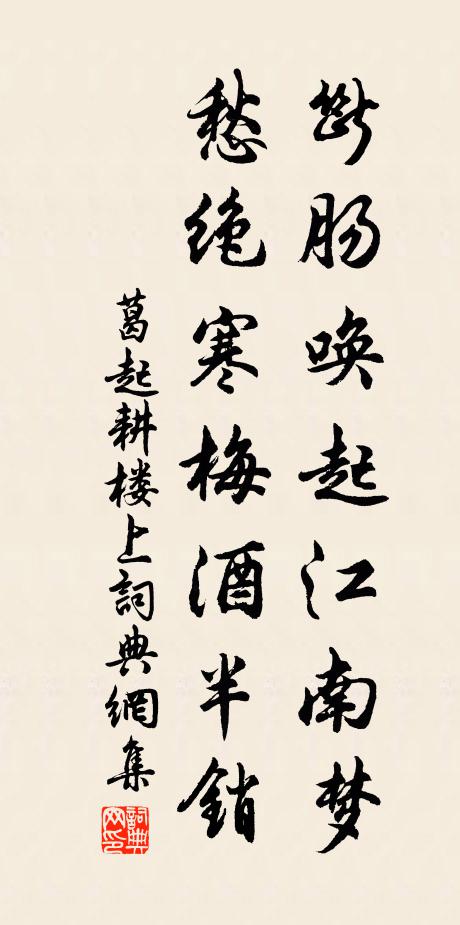 斷肠唤起江南梦
愁绝寒梅酒半销
葛起耕楼上詞典網集
詞典网印